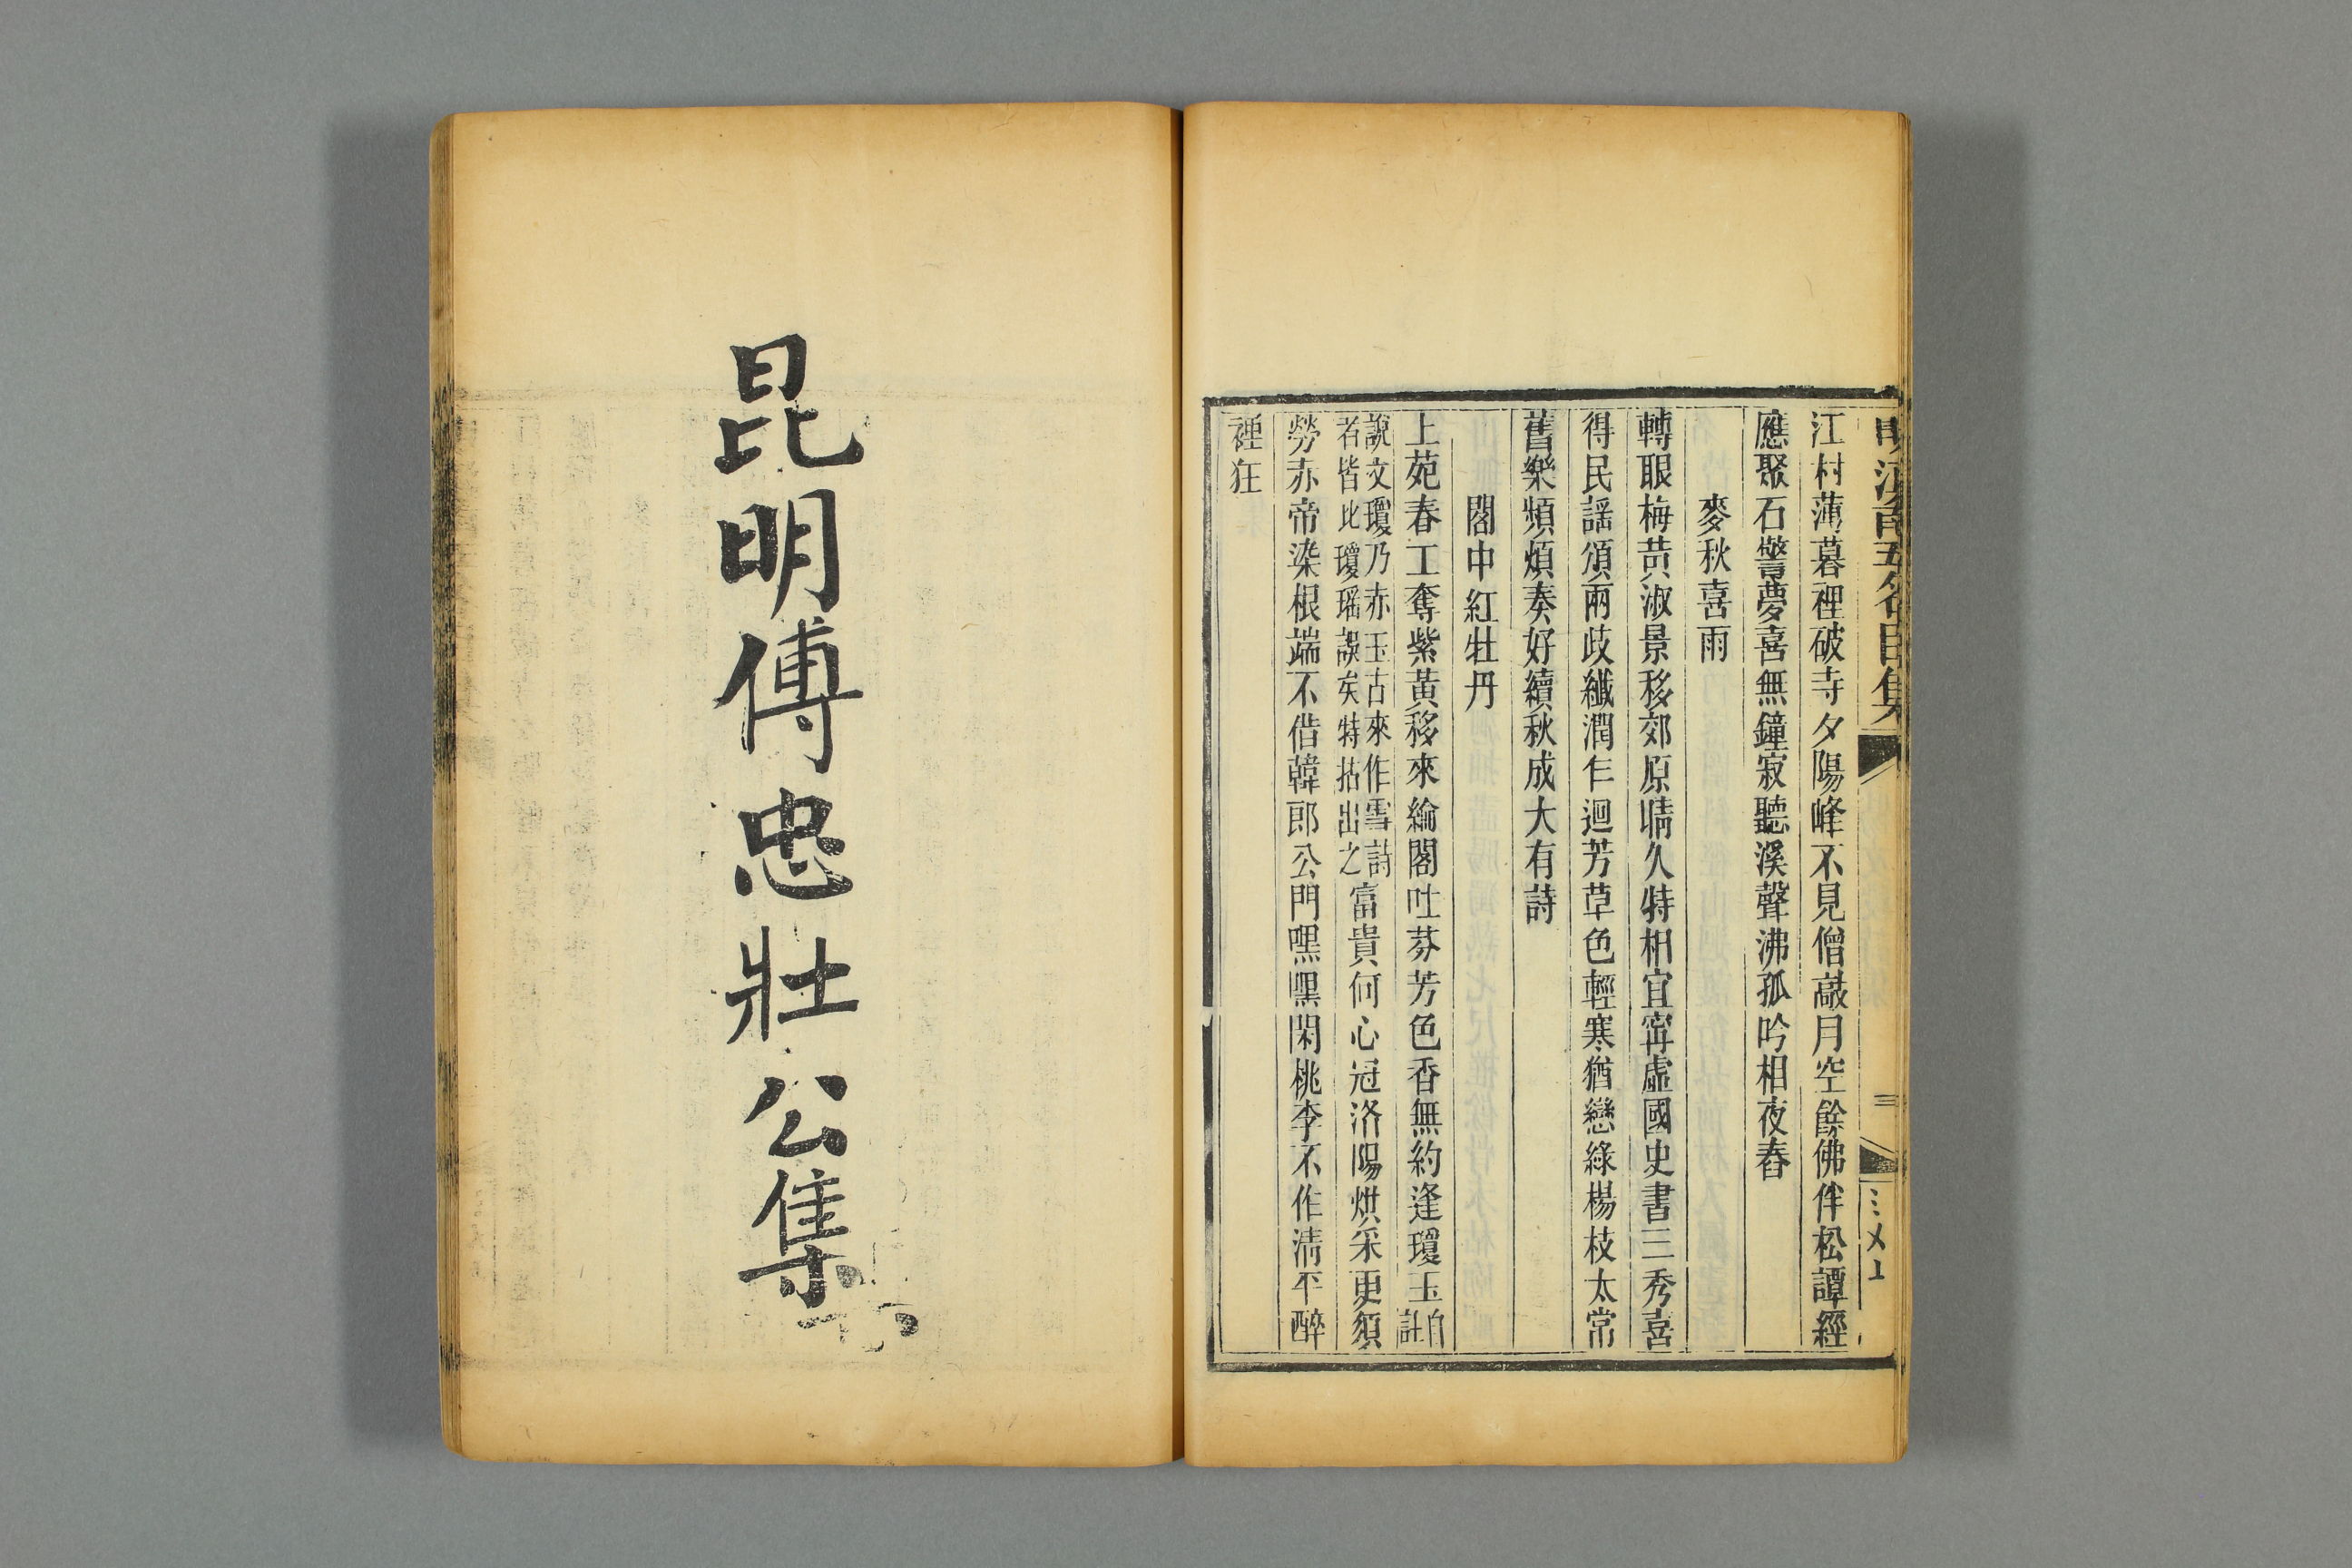 明滇南五名臣集
三
江村薄暮裡破寺夕陽峰不見僧敲月空餘佛伴松譚經
應聚石警夢喜無鐘寂聽溪聲沸孤吟相夜舂
麥秋喜雨
轉眼梅黃淑景移郊原晴久特相宜寧虛國史書三秀喜
得民謠頌兩歧纖潤乍迴芳草色輕寒猶戀綠楊枝太常
舊樂頻煩奏好續秋成大有詩
閣中紅牡丹
上苑春工奪紫黃移來綸閣吐芬芳色香無約逢瓊玉自註
說文瓊乃赤玉古來作雪詩者皆比瓊瑤誤矣特拈出之富貴何心冠洛陽烘采更須
勞赤帝染根端不借韓郎公門嘿嘿閑桃李不作清平醉
裡狂
昆明傅忠壯公集